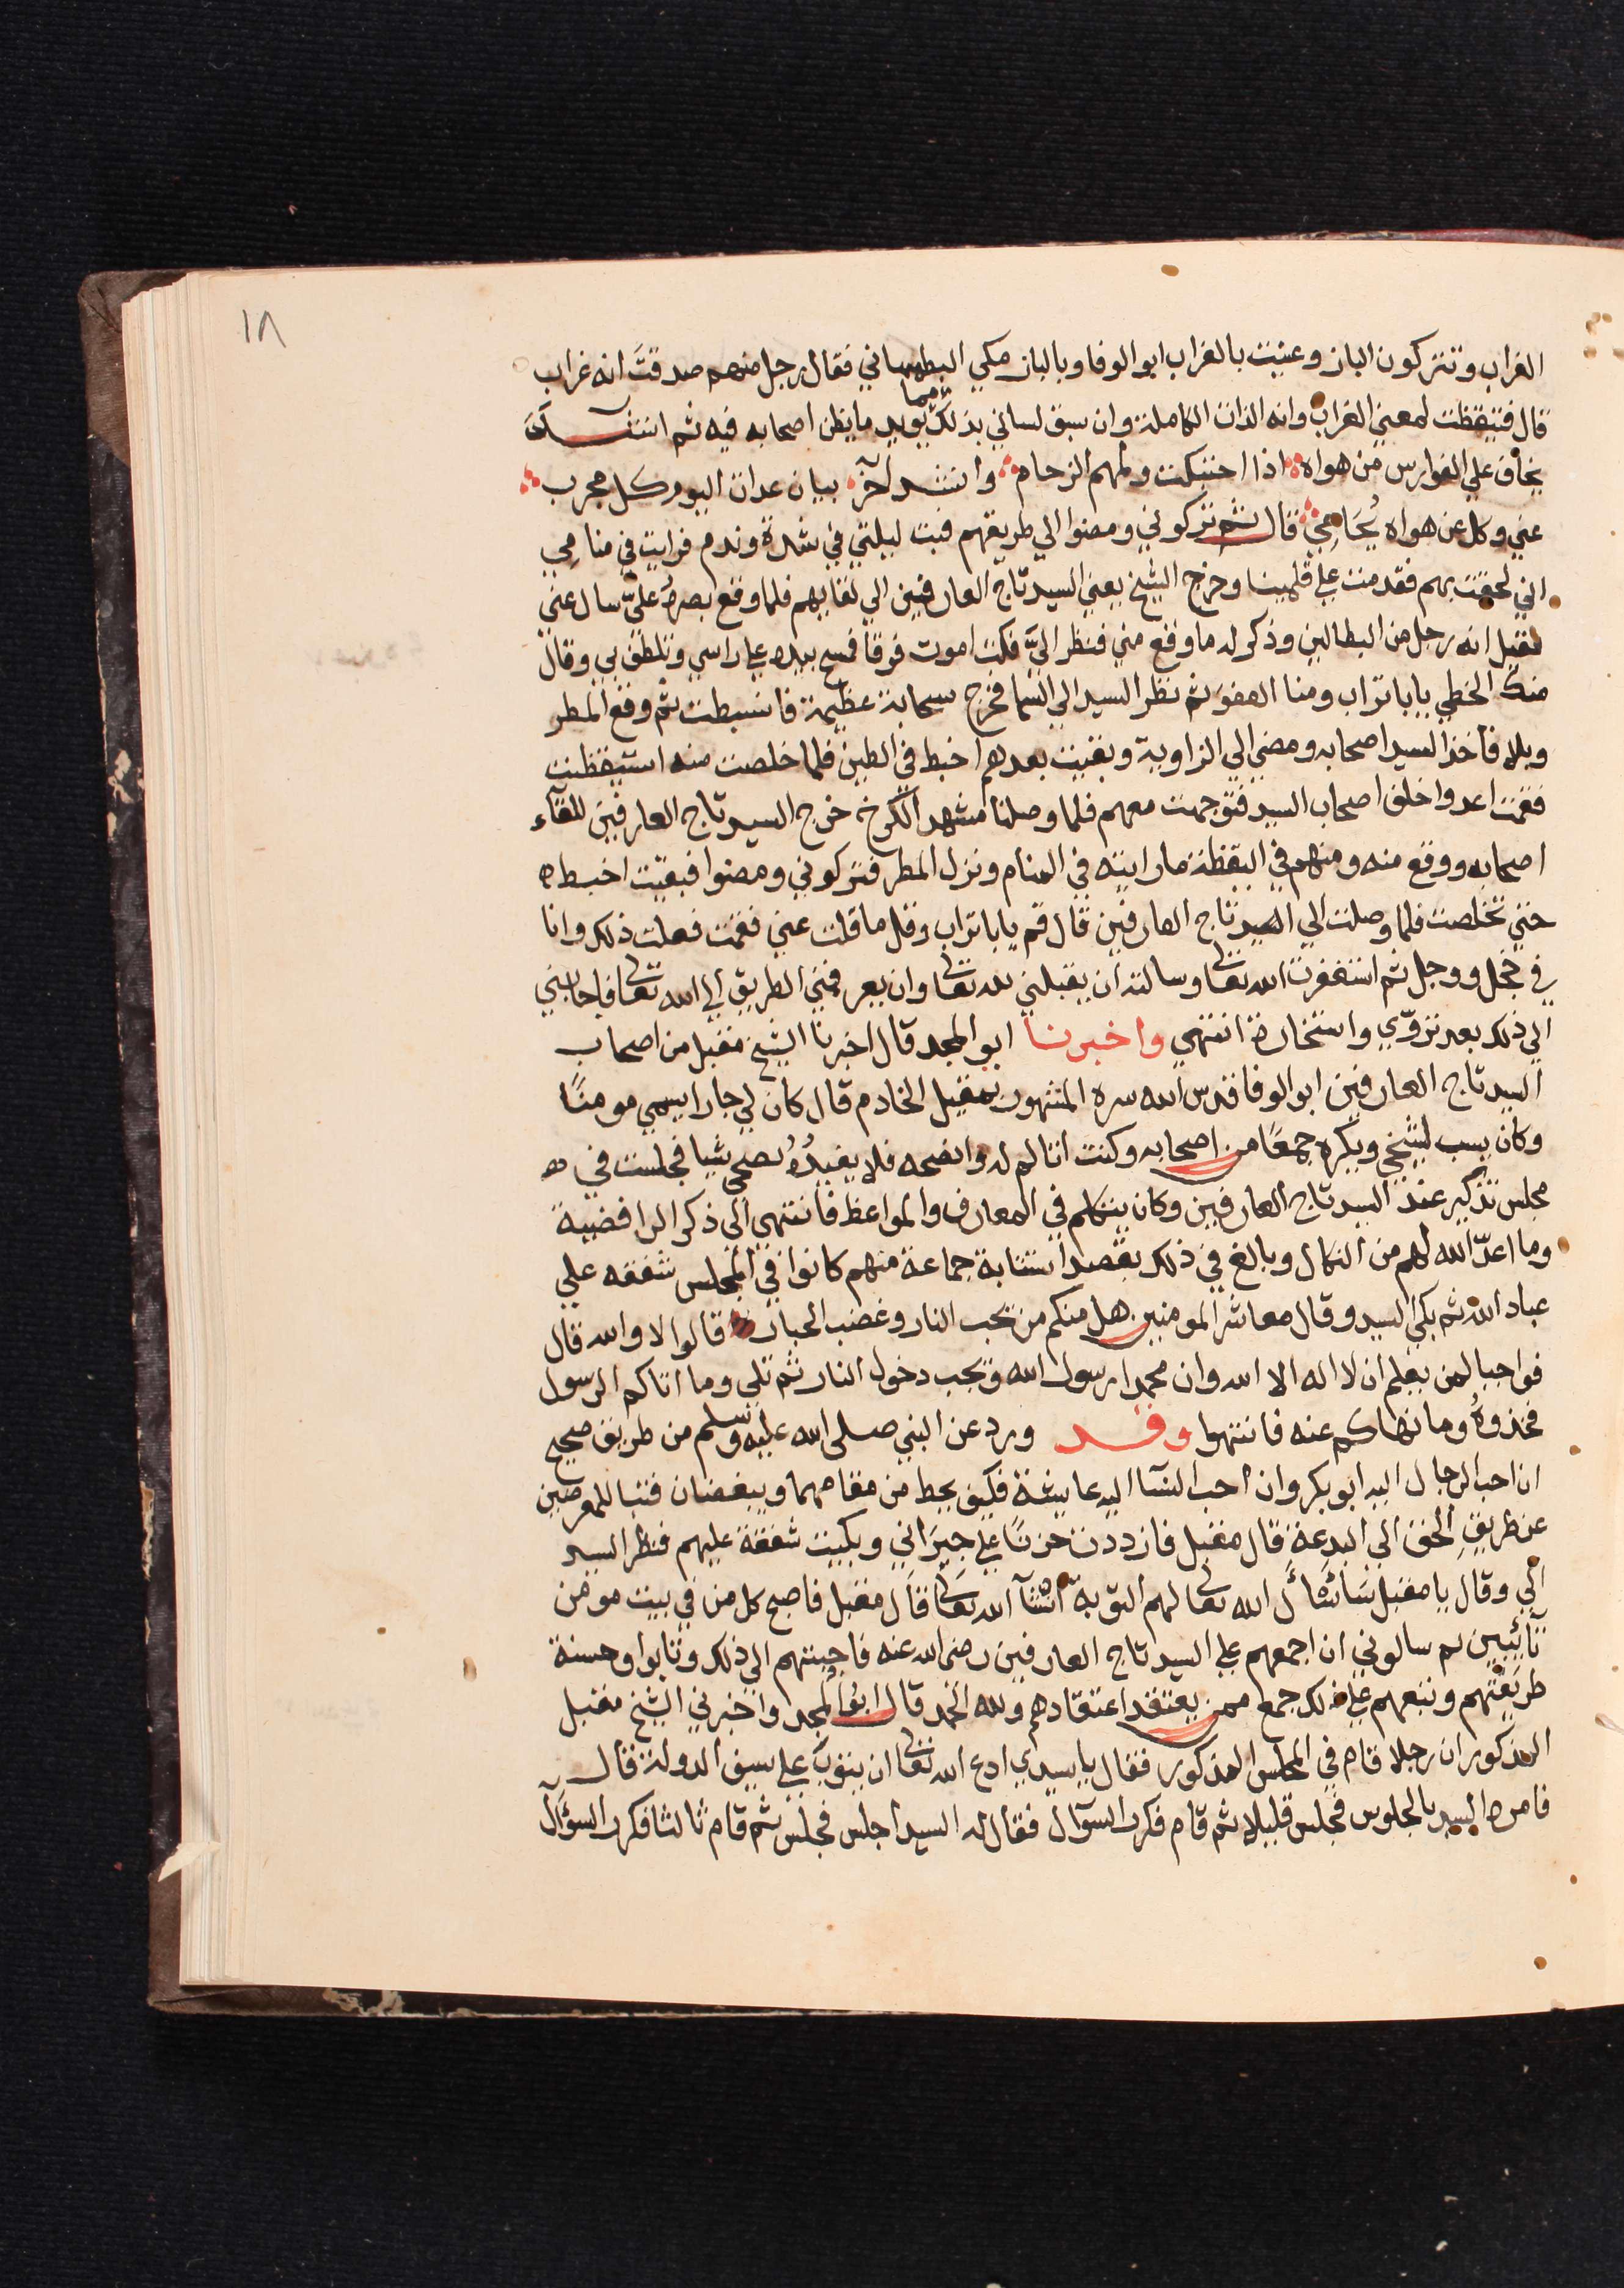 ١٨
الغراب وتتركون الباز وعنيت بالغراب ابو الوفا وبالباز مكي البطهساني فقال رجل منهم صدقت انه غراب
قال فتيقظت لمعني الغراب وانه الذات الكاملة وان سبق لساني بذلك مما يويد ما يظن اصحابه فيه ثم انشد
يخاف علي الفوارس من هواه اذا احتبكت ولمهم الزحام وانشد آخر بيان عدان اليوم كل مجرب
عني وكل عن هواه يُحَامِي قال ثم تركوني ومضوا الي طريقهم فبت ليلتي في شدة وندم فرايت في منامي
اني لحقت بهم فقدمت علي قلمينا وخرج الشيخ يعني السيد تاج العارفين الي لقايهم فلما وقع بصره عليّ سال عني
فقيل انه رجل من البطالين وذكر له ما وقع مني فنظر اليّ فكدت اموت فرقا فمسح بيده علي راسي وتلطف بي وقال
منك الخطي يا با تراب ومنا العفو ثم نظر السيد الي السما فخرج سحابة عظيمة فانبسطت ثم وقع المطر
وبلا فاخذ السيد اصحابه ومضي الي الزاوية وبقيت بعدهم اخبط في الطين فلما خلصت منه استيقظت
فقمت اعدوا خلف اصحاب السيد فتوجهت معهم فلما وصلنا مشهد الكرخ خرج السيد تاج العارفين للقآء
اصحابه ووقع منه ومنهم في اليقظة ما رايته في المنام ونزل المطر فتركوني ومضوا فبقيت اخبط
حتي تخلصت فلما وصلت الي السيد تاج العارفين قال قم يا با تراب وقل ما قلت عني فقمت فعلت ذلك وانا
في خجل ووجل ثم استغفرت الله تعالى وسالته ان يقبلني لله تعالى وان يعرفني الطريق الي الله تعالى فاجابني
الي ذلك بعد تروّي واستخارة انتهي واخبرنا ابو المجد قال اخبرنا الشيخ مقبل من اصحاب
السيد تاج العارفين ابو الوفا قدس الله سره المشهور بمقبل الخادم قال كان لي جارا يسمي مومنًا
وكان يسب شيخي ويكره جمعًا من اصحابه وكنت انا الم له وانصحه فلا يفيدُهُ نصحي شيا فجلست في
مجلس تذكير عند السيد تاج العارفين وكان يتكلم في المعارف والمواعظ فانتهي الى ذكر الرافضية
وما اعدّ الله لهم من النكال وبالغ في ذلك بقصد استتابة جماعة منهم كانوا في المجلس شفقه علي
عباد الله ثم بكي السيد وقال معاشر المومنين هل منكم من يحب النار وغضب الجبار قالوا لا والله قال
فواعجبا لمن يعلم ان لا اله الا الله وان محمدا رسول الله ويحب دخول النار ثم تلي وما اتاكم الرسول
فخذوهُ وما نهاكم عنه فانتهوا وقد ورد عن النبي صلى الله عليه وسلم من طريق صحيح
ان احب الرجال اليه ابو بكر وان احب النسآ اليه عايشة فكيف يحط من مقامهما ويبغضان فتبا للمعرضين
عن طريقِ الحق الي البدعة قال مقبل فازددت حزنًا علي جيرَاني وبكيت شفقة عليهم فنظر السيد
الي وقال يا مقبل سَاسْأَلُ الله تعالى لهم التوبة انشآ الله تعالى قال مقبل فاصبح كل من في بيت مومن
تآئبين ثم سالوني ان اجمعهم علي السيد تاج العارفين رضى الله عنه فاجبتهم الى ذلك وتابوا وحسنة
طريقتهم وتبعهم علي ذلك جمع ممن يعتقد اعتقادهم ولله الحمد قال ابوُا المجد واخبرني الشيخ مقبل
المذكور ان رجلا قام في المجلس المذكور فقال يا سيدي ادع الله تعالى ان يتوب علي سيف الدولة قال
فامره السيد بالجلوس فجلس قليلا ثم قام فكرر السوآل فقال له السيد اجلس فجلس ثم قام ثالثا فكرر السؤآل